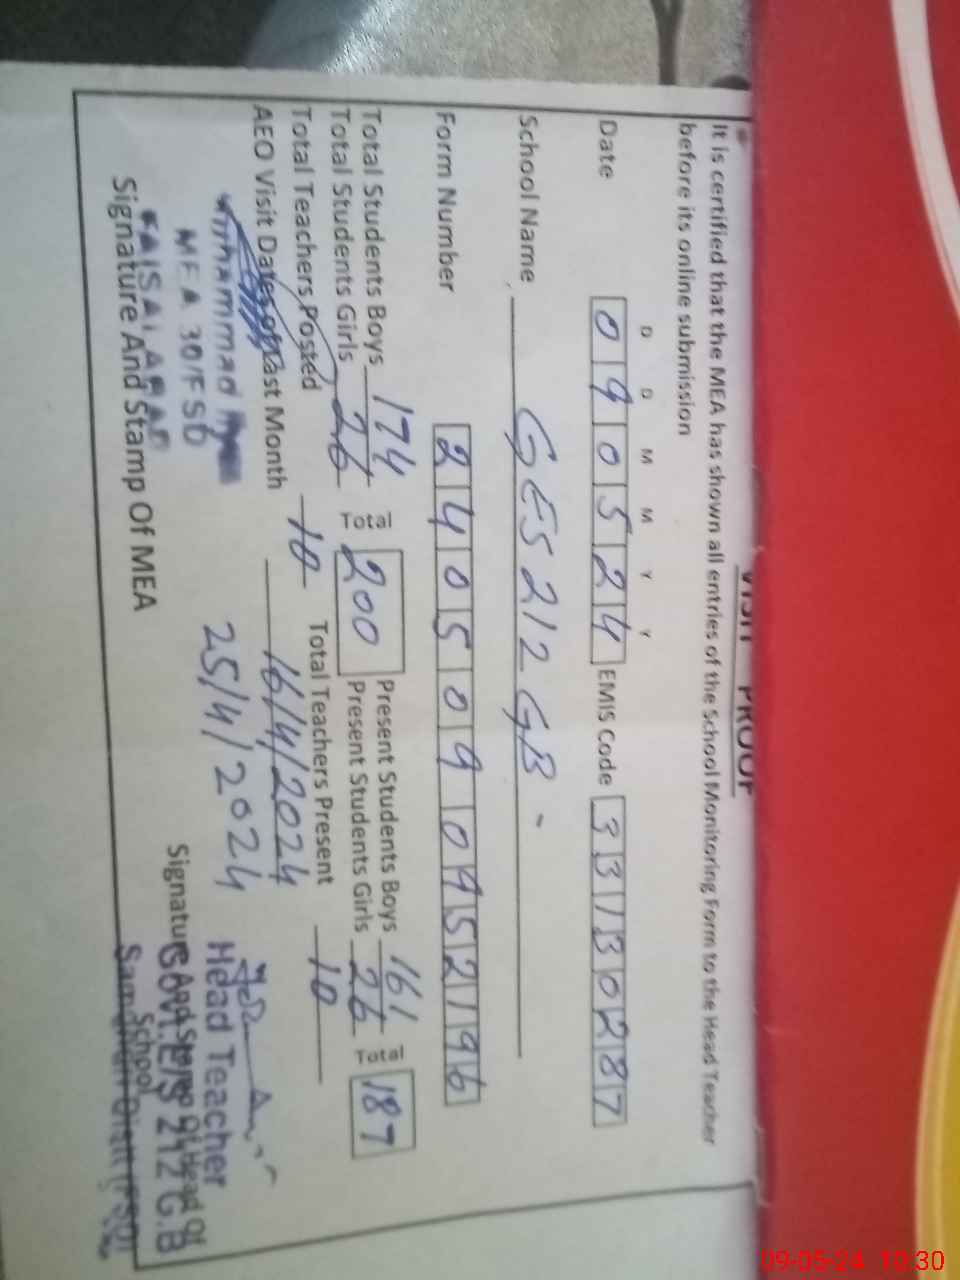 VISIT PROOF
It is certified that the MEA has shown all entries of the School Monitoring Form to the Head Teacher
before its online submission
D D M M Y Y
Date 0 9 0 5 2 4 EMIS Code 3 3 1 3 0 2 8 7
School Name GES 212 GB
Form Number 2 4 0 5 0 9 0 9 5 2 1 9 6
Total Students Boys 174 Total 200 Present Students Boys 161 Total 187
Total Students Girls 26 Present Students Girls 26
Total Teachers Posted 10 Total Teachers Present 10
AEO Visit Dates of Past Month 16/4/2024
25/4/2024
Muhammad
MEA 30/FSD
FAISALABAD
Signature And Stamp Of MEA
Head Teacher
Signature And Stamp Of Head Of
School
Govt. E/S 212 G.B
09-05-24 10:30